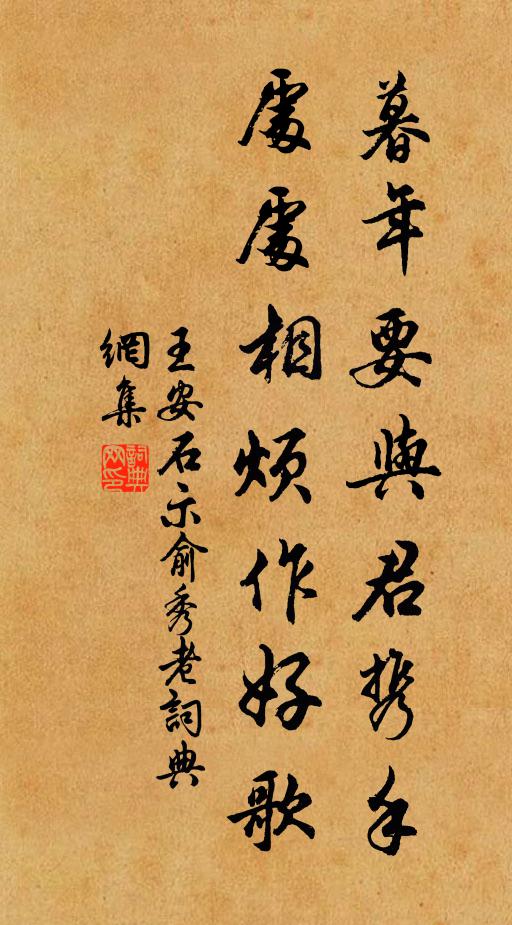 暮年要與君携手
處處相煩作好歌
王安石示俞秀老詞典
網集
詞典網印